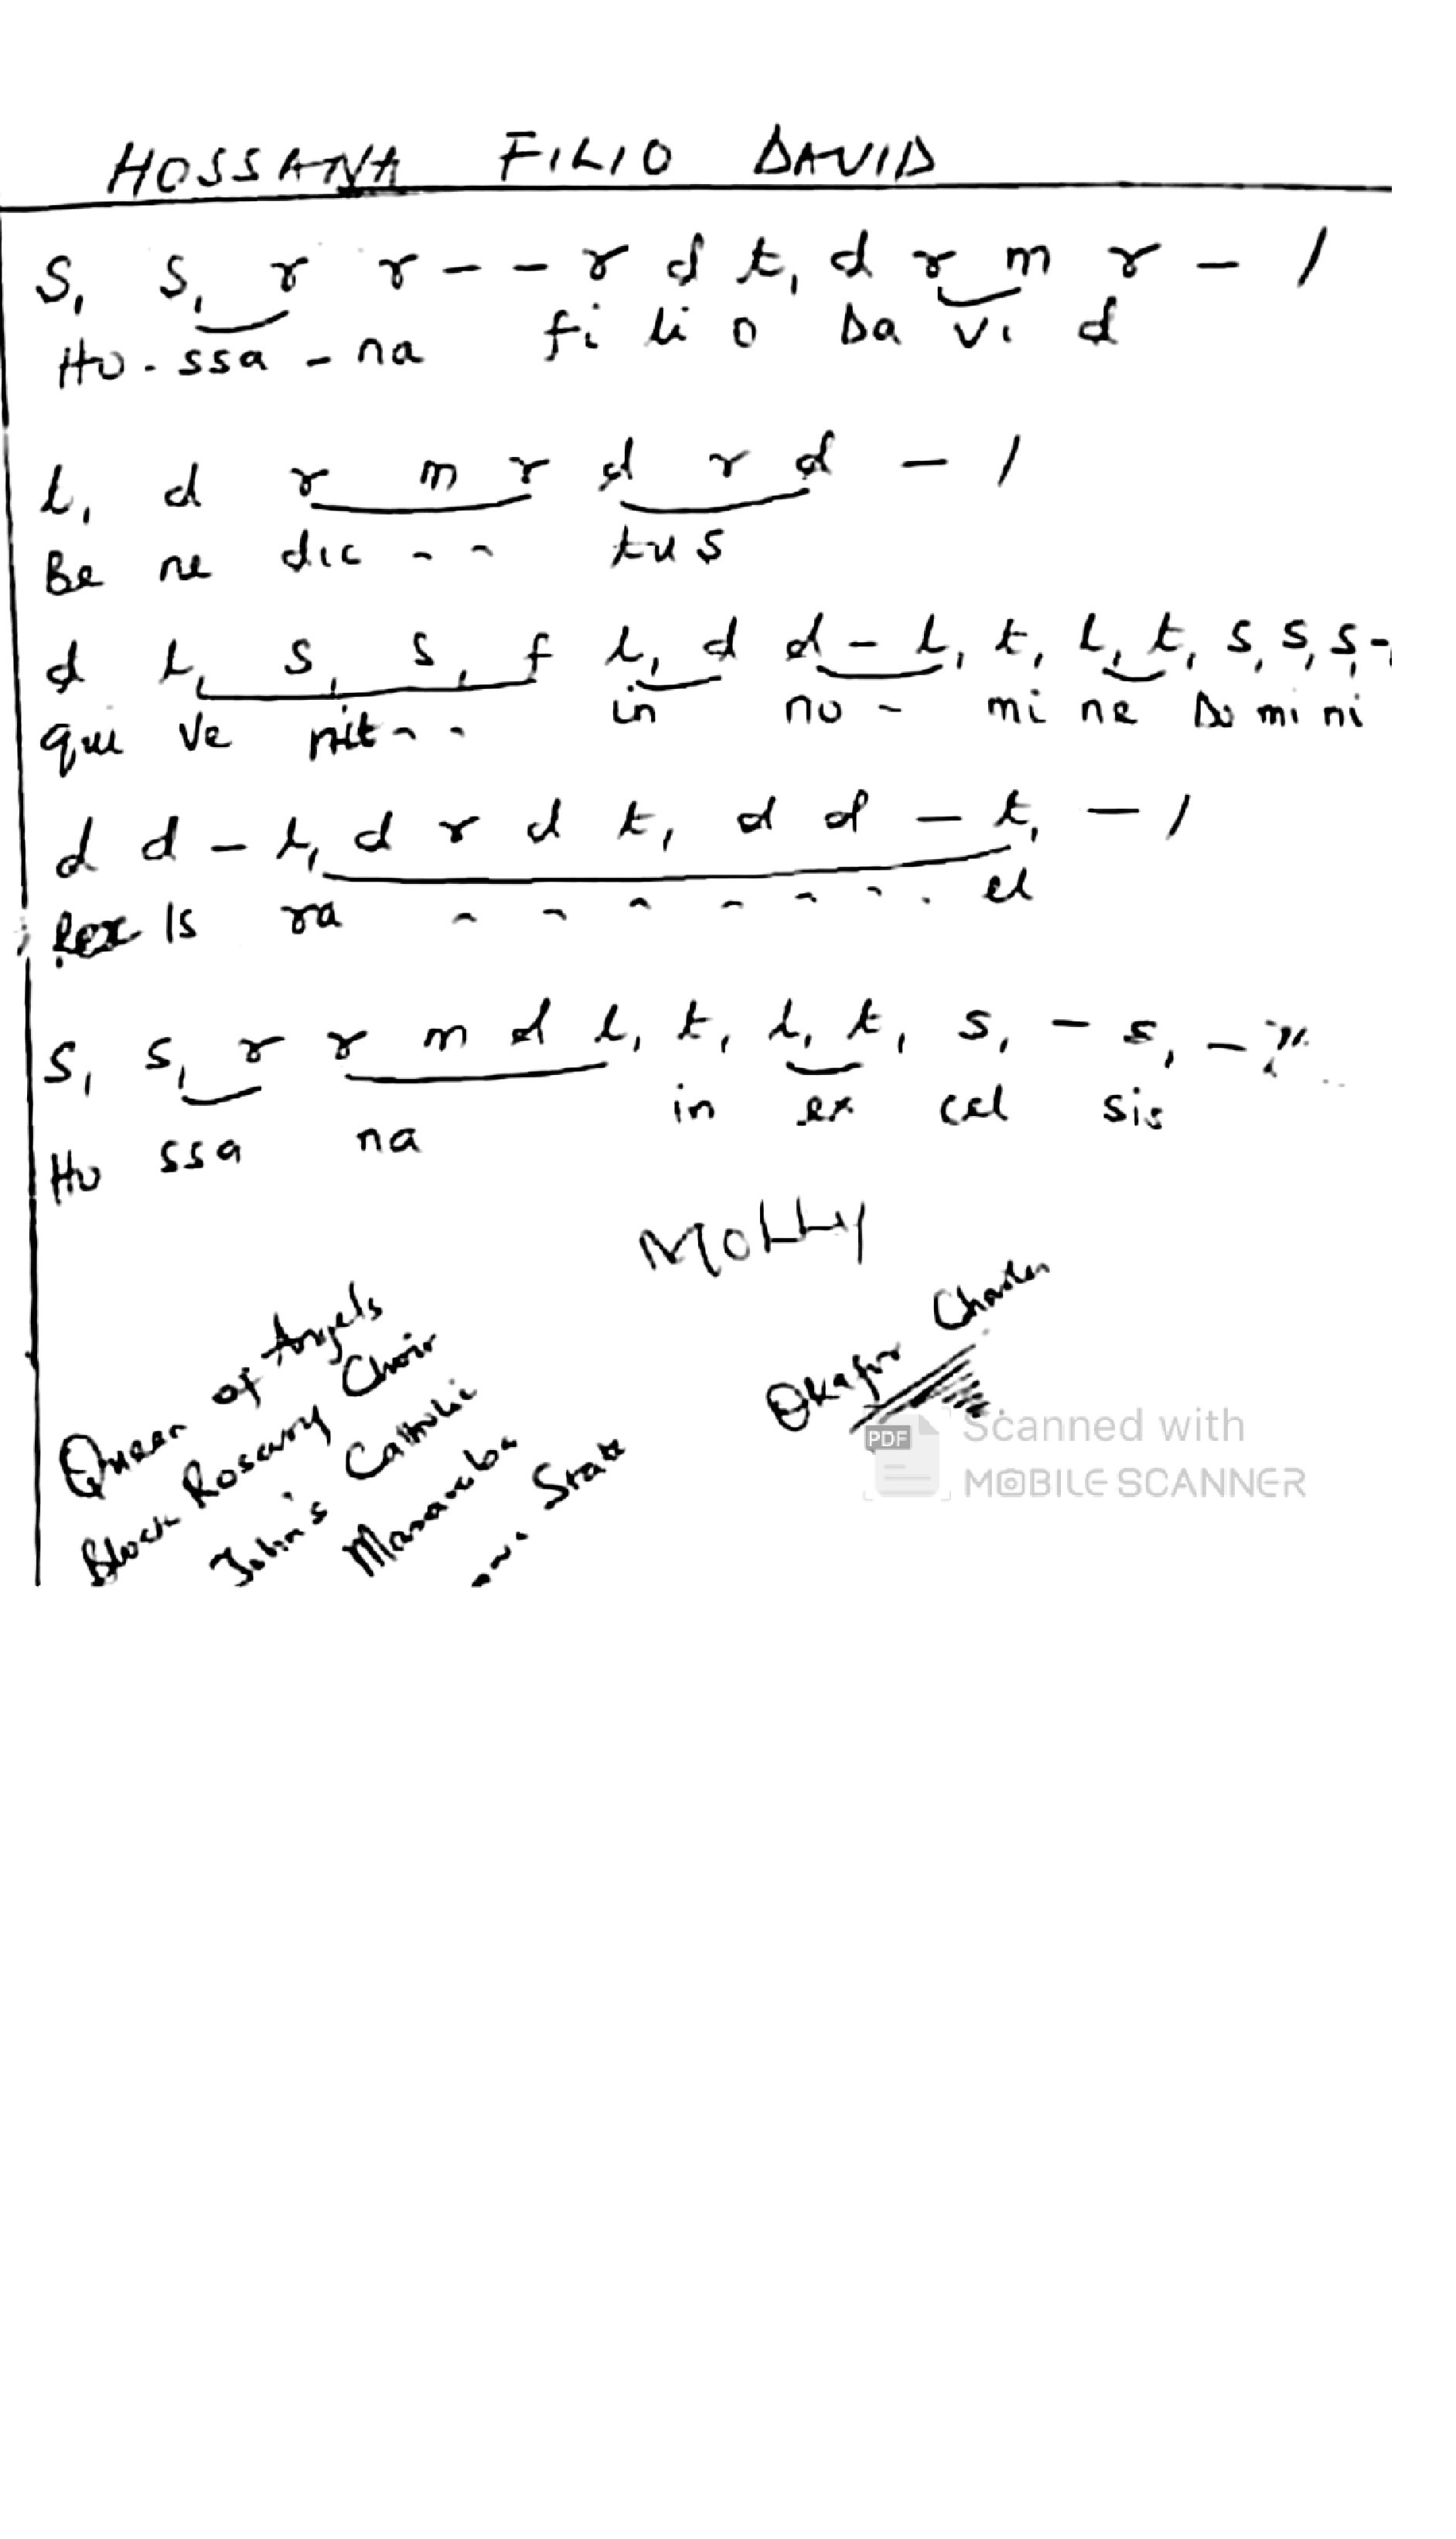 HOSSANA FILIO DAVID
S, S, r r - - r d t, d r m r - /
Ho - ssa - na fi li o Da vi d
l, d r m r d r d - /
Be ne dic - - tus
d l, s, s, f l, d d - l, t, l, t, s, s, s, -
qui ve nit - - in no - mi ne Do mi ni
d d - l, d r d t, d d - t, - /
Rex Is ra - - - - - - - el
S, s, r r m d l, t, l, t, s, - s, -
Ho ssa na in ex cel sis
MOLLY
Okafor Charles
Queen of Angels
Block Rosary Choir
John's Catholic
State
PDF
Scanned with
MOBILE SCANNER